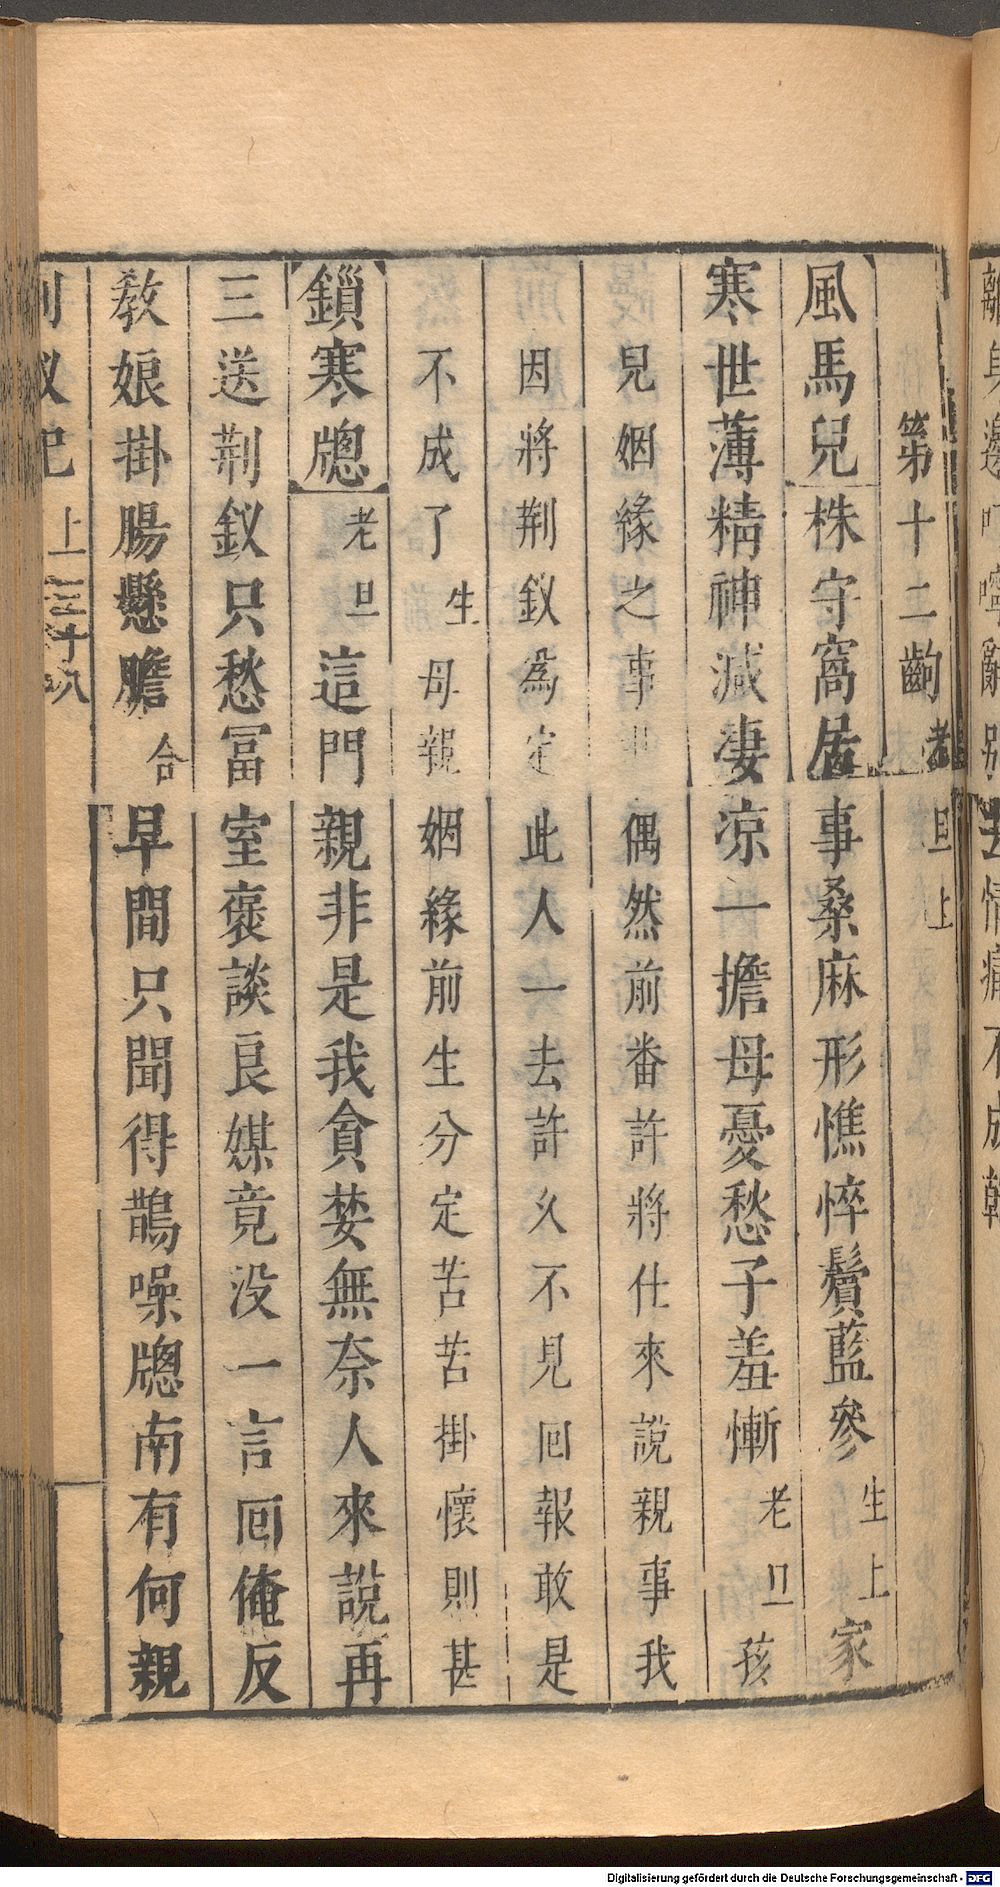 第十二齣 老旦上
風馬兒 株守窩居事桑麻形憔悴鬢藍參 生上 家
寒世薄精神減凄涼一擔母憂愁子羞慚 老旦 孩
兒姻緣之事 偶然前番許將仕來說親事我
因將荆釵為定此人一去許久不見回報敢是
不成了 生 母親姻緣前生分定苦苦掛懷則甚
鎖寒牕 老旦 這門親非是我貪婪無奈人來說再
三送荆釵只愁冨室褒談良媒竟没一言囘俺反
教娘掛腸懸膽 合 早間只聞得鵲噪牕南有何親
釵記 上 三十八
Digitalisierung gefördert durch die Deutsche Forschungsgemeinschaft - DFG